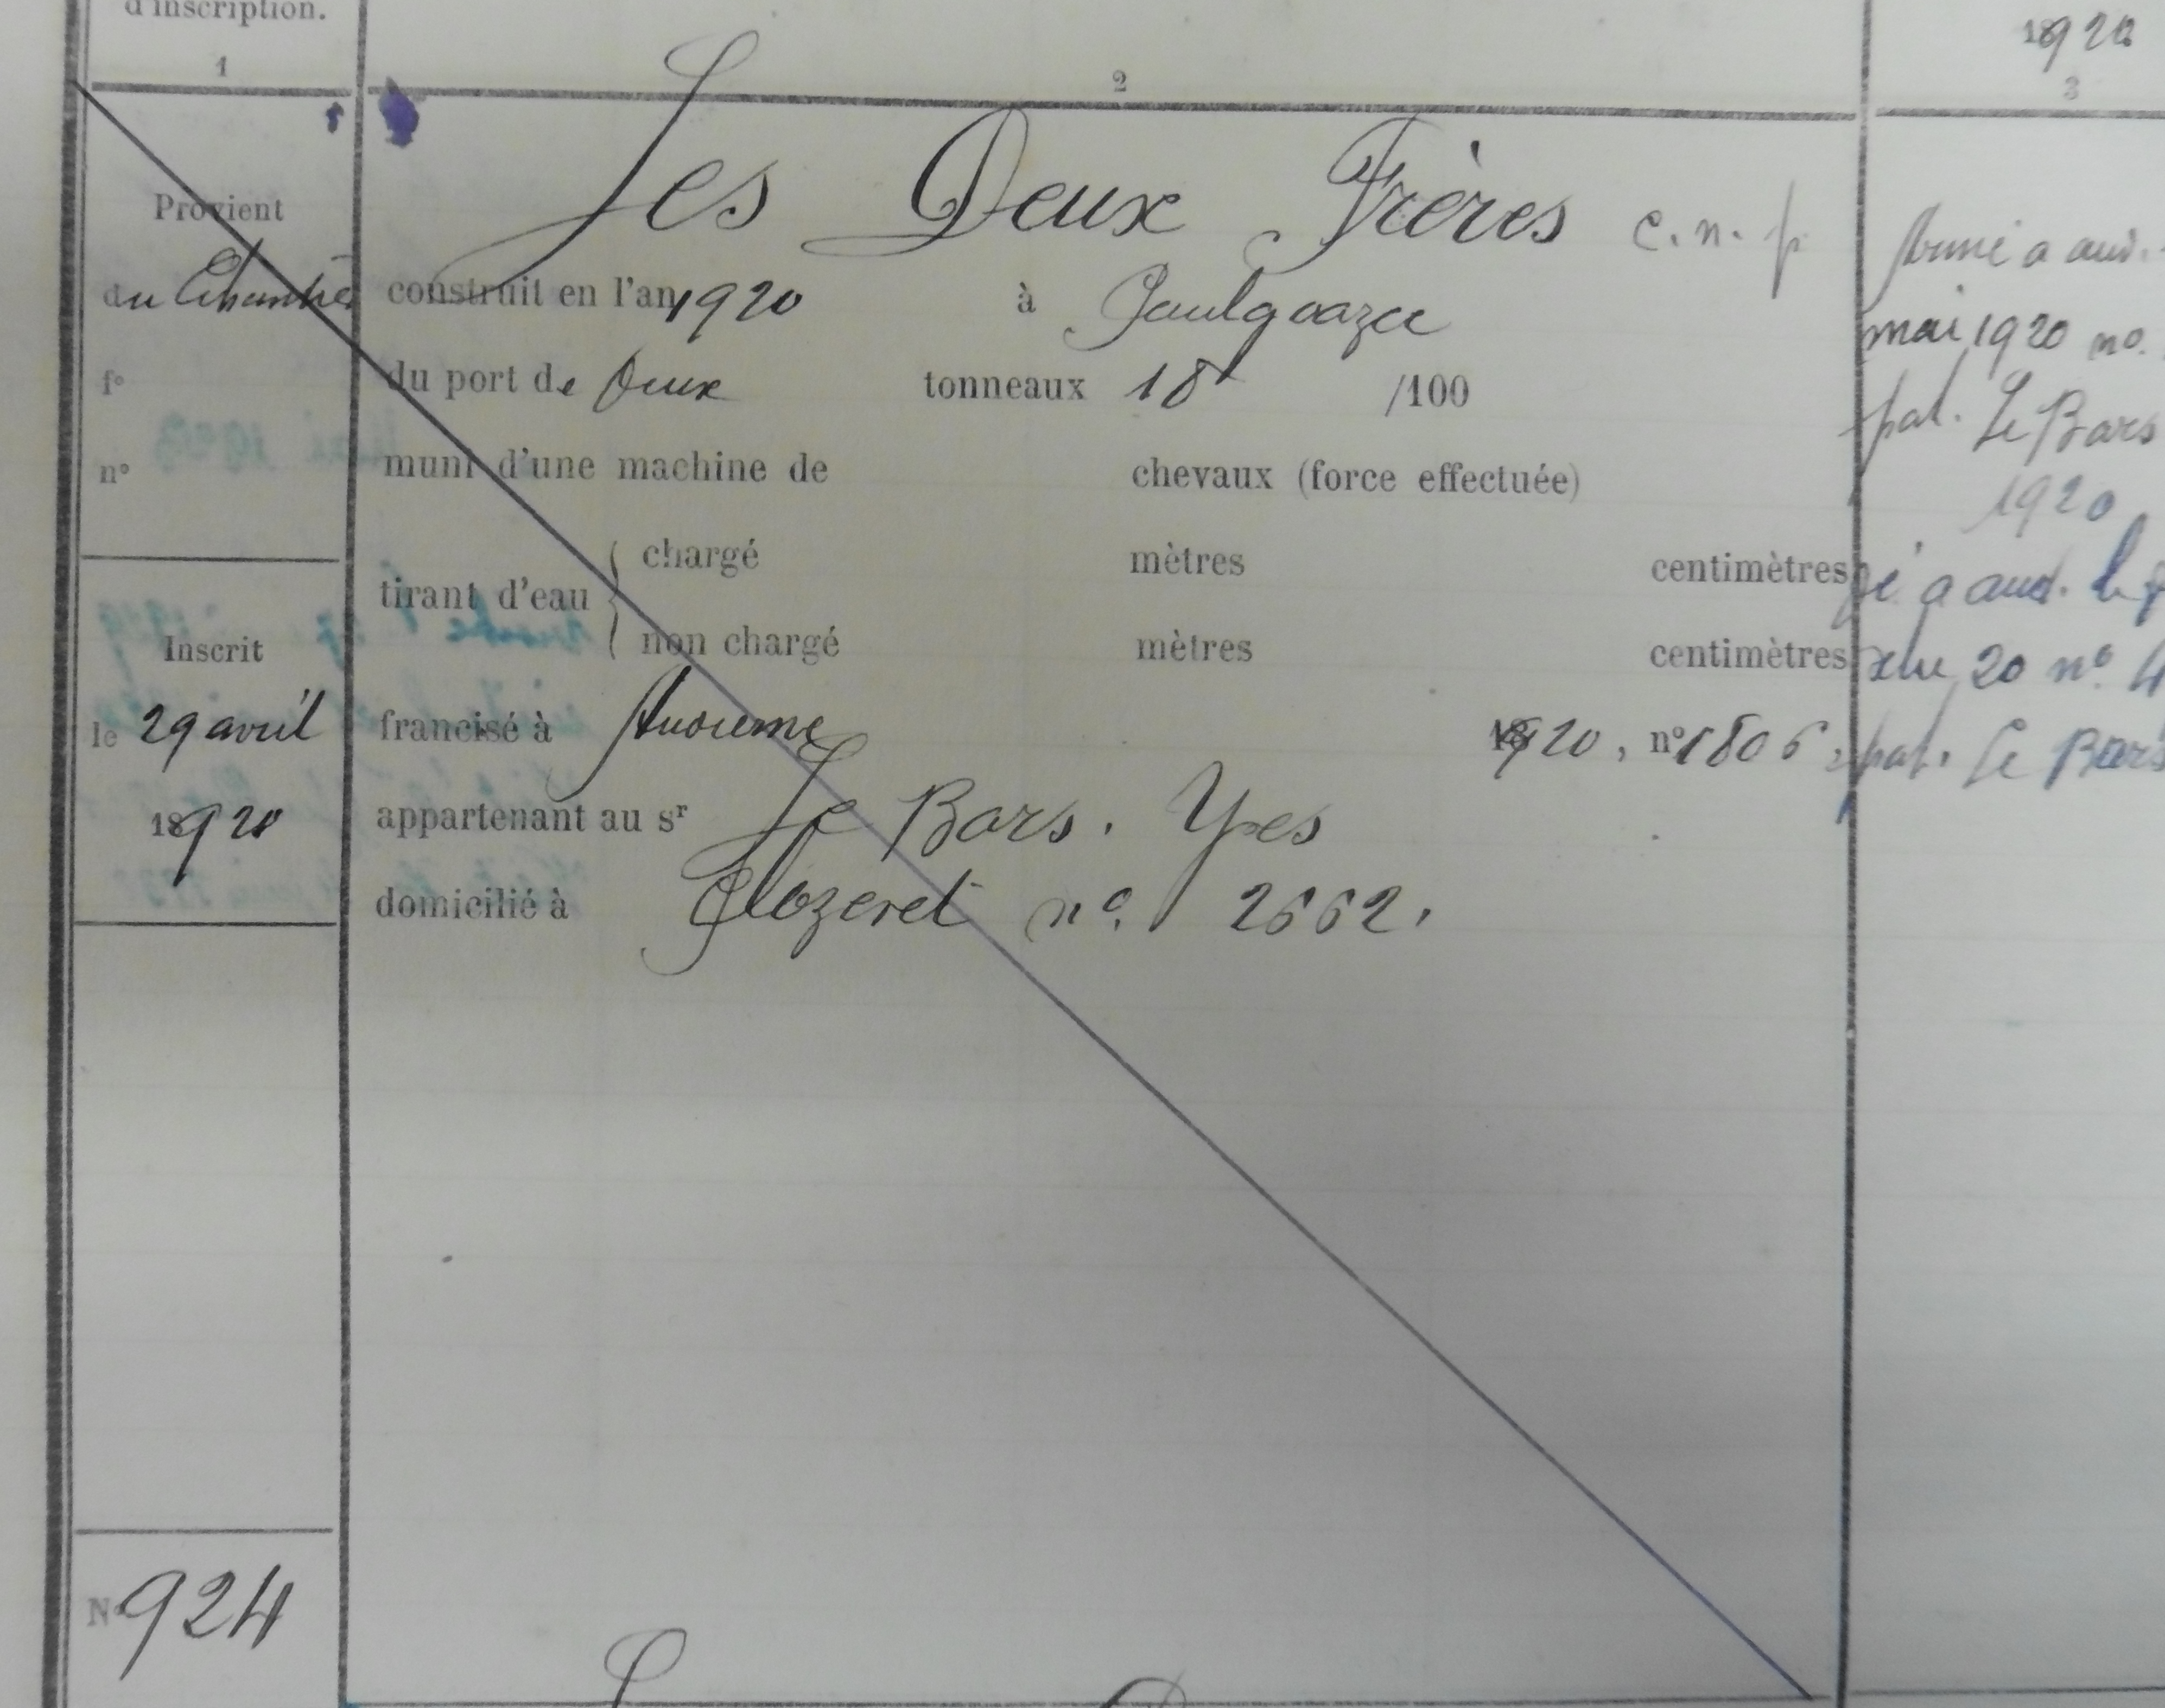 d'inscription.
1
2
1920
3
Provient
du Chantier
f°
n°
Inscrit
le 29 avril
1920
N° 924
Les Deux Frères c. n. p
construit en l'an 1920 à Poulgoazec
du port de deux tonneaux 18 /100
muni d'une machine de chevaux (force effectuée)
tirant d'eau { chargé mètres centimètres
non chargé mètres centimètres
francisé à Audierne 1920, n° 1806,
appartenant au sr Le Bars. Yves
domicilié à Plozevet n° 2662.
Armé a aud.
mai 1920 no.
pat. Le Bars
1920
é a aud. le
20 n° 4
pat. Le Bars